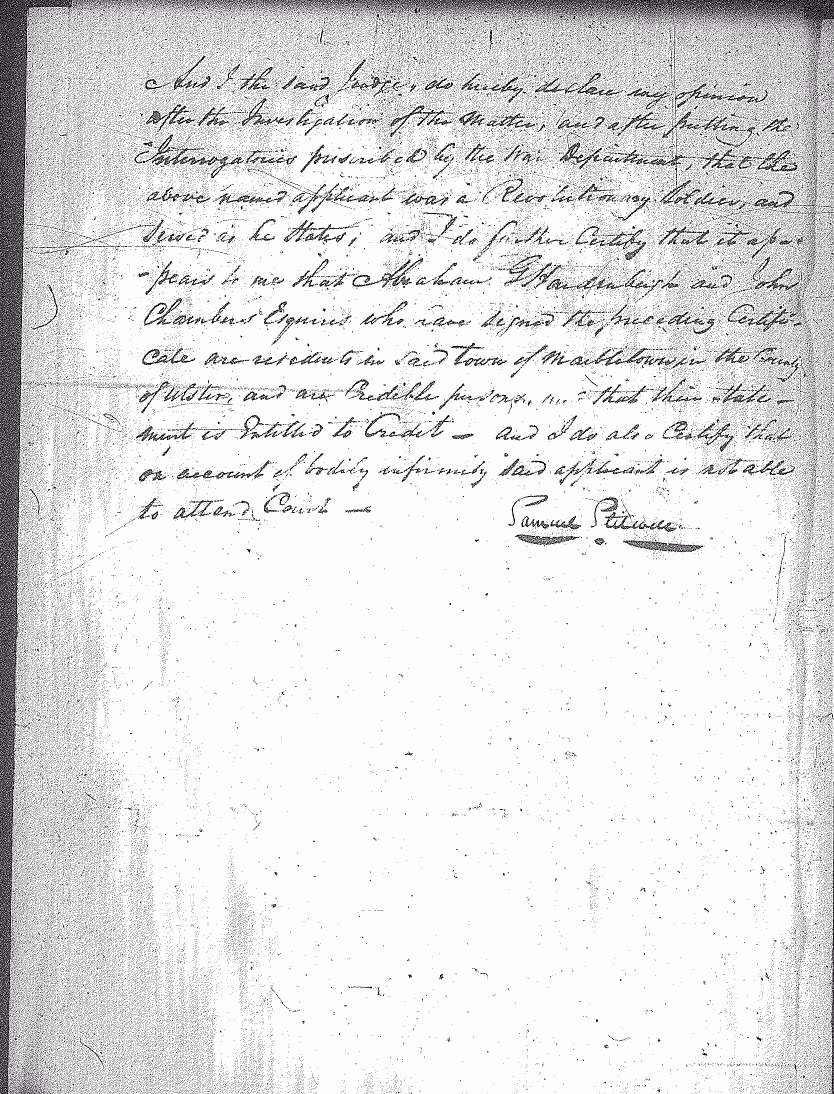 And I the said Judge, do hereby declare my opinion
after the Investigation of the Matter, and after putting the
Interrogatories prescribed by the War Department, that the
above named applicant was a Revolutionary Soldier, and
Served as he States; and I do further Certify that it ap-
-pears to me that Abraham G Hardenbergh and John
Chambers Esquires who have signed the preceding Certifi-
cate are residents in said town of Marbletown in the County
of Ulster, and are Credible persons, that their state-
ment is Entitled to Credit — and I do also Certify that
on account of bodily infirmity said applicant is not able
to attend Court —
Samuel Stilwell